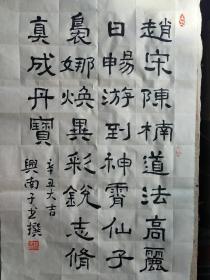 趙宋陳楠道法高麗
日暢游到神霄仙子
裊娜煥異彩銳志脩
真成丹寶
辛丑大吉
興南子書撰